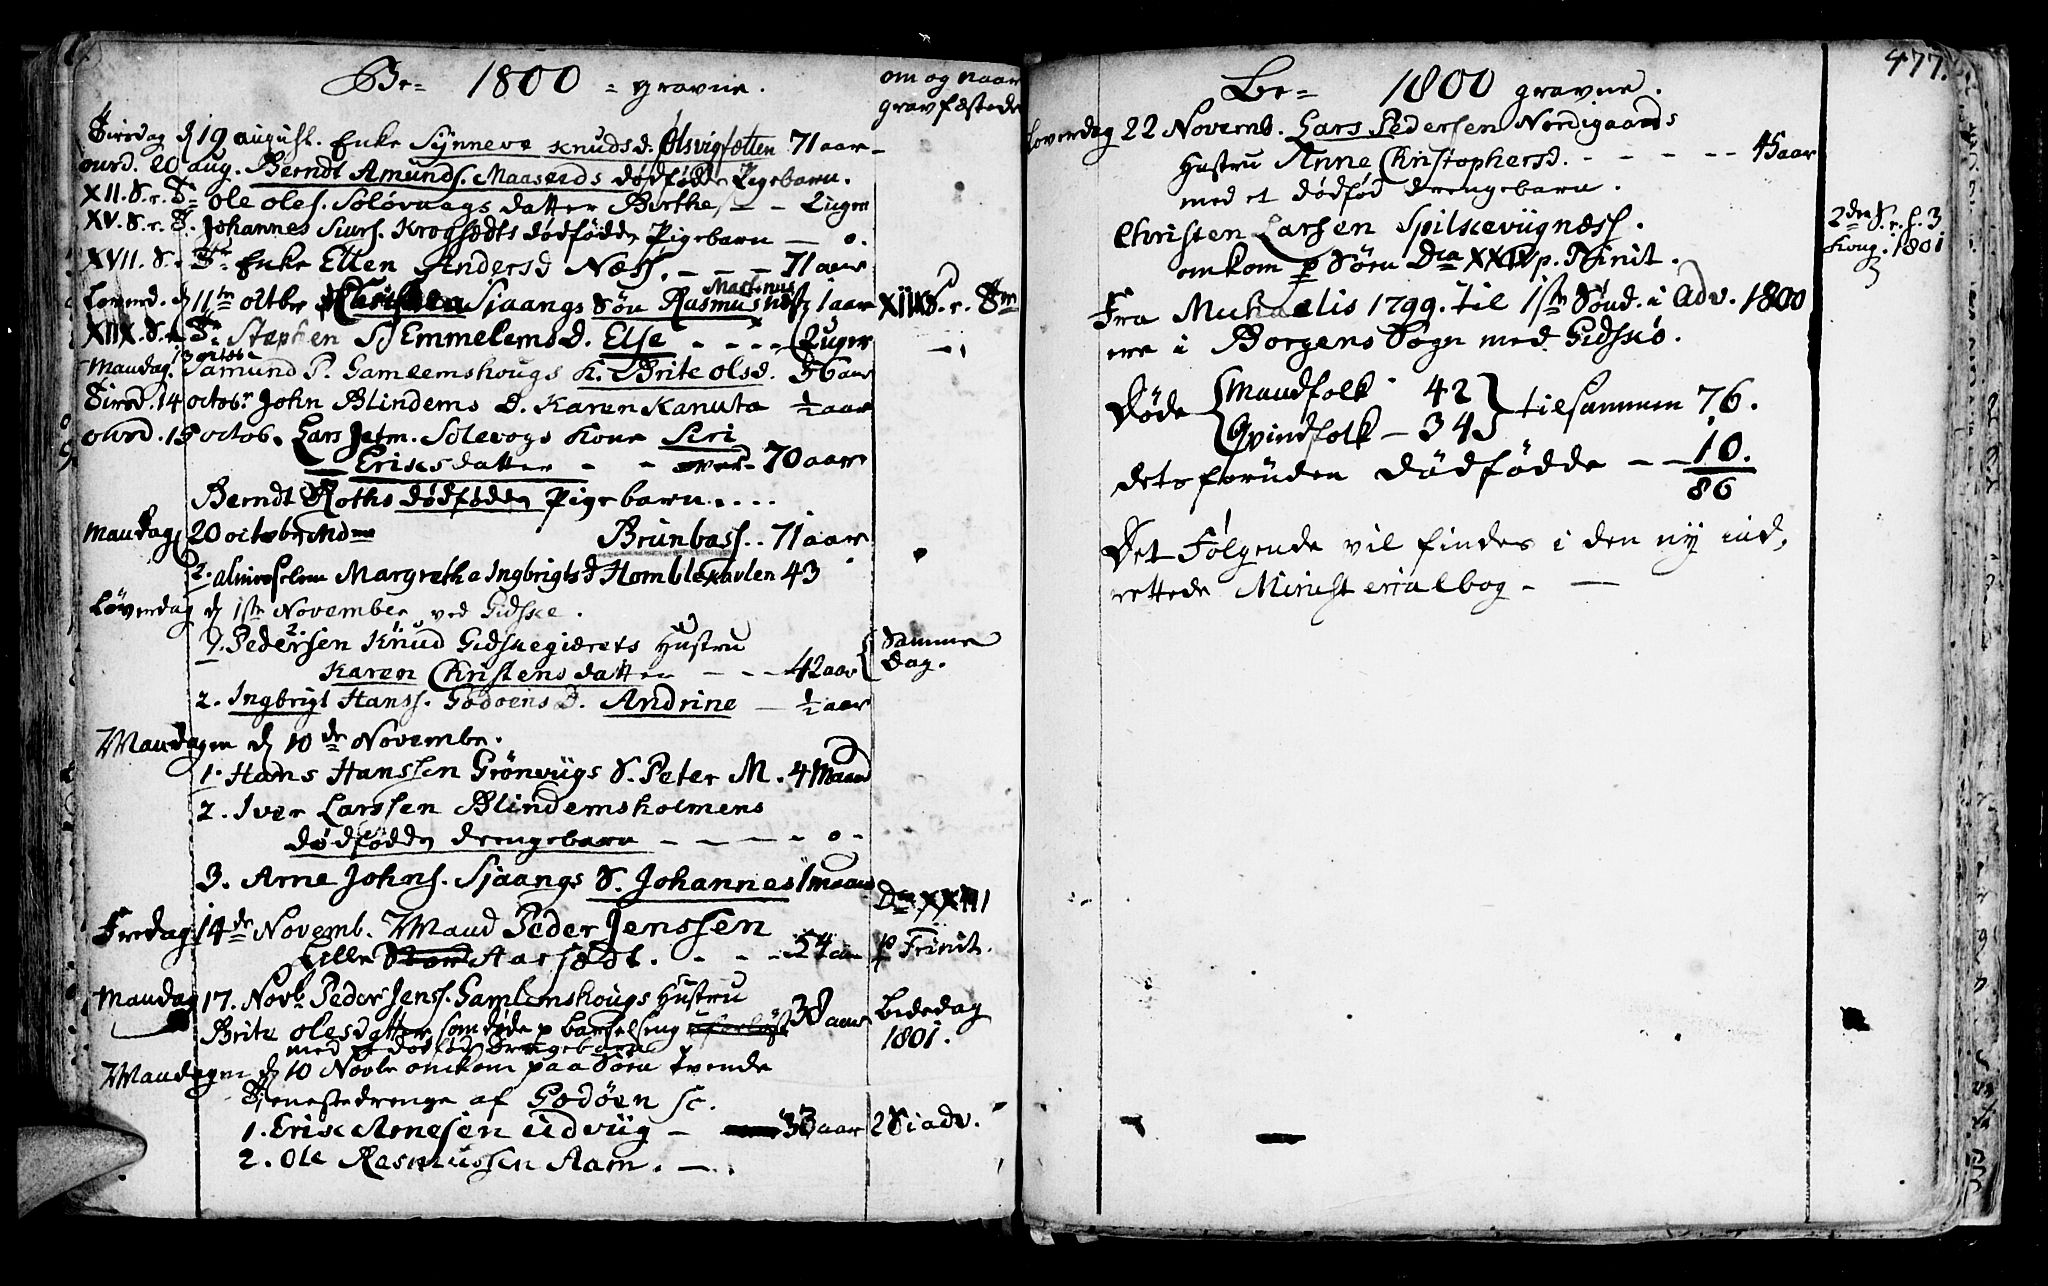 Be= 1800 = gravne.
om og naar
gravfæstede
Tirsdag d 19 august. Enke Synneve Knudsd. Olsvigsætten 71 aar
onsd. 20 aug. Berndt Amunds. Maaseids dødfødde Pigebarn.
XII. S. r. Tr. Ole Oles. Soløvaags datter Birthe - 2 uger
XV. S. r. T. Johannes Siurs. Krogsædts dødfødde Pigebarn - o.
XVII. S. r. Tr. Enke Ellen Andersd Næss. - - - 71 aar
Løverd. d 11te octbr Sjaangs Søn Rasmus Martinus 1 aar
XIIX. S. r. Tr.
XIIX. S. r. Tr. Stephen Emmelems D. Else - - - 2 uger
Mandag 13 octobr Samund P. Gamlemshougs K. Brite olsd. 36 aar
Tirsd. 14 octobr John Blindems D. Karen Kanuta ½ aar
onsd. 15 octob. Lars Jetm. Solevogs Kone Siri
Eriksdatter - - over 70 aar
Berndt Roths dødfødde Pigebarn. . . .
Mandag 20 octobr Md. Brunbass. . 71 aar
2. almisselem Margrethe Ingbrigtsd Homble 43
Løverdag d 1ste November ved Gidske.
1. Pedersen Knud Gidskegierets Hustru
Karen Christensdatter - - - 42 aar
Samme
Dag.
2. Ingbrigt Hanss. Godøens D. Andrine - ½ aar
Mandagen d 10de Novembr.
1. Hans Hanssen Grönvügs S. Peter M. 4 Maaned
2. Iver Larssen Blindemsholmens
dødfødde drengebarn - - - - - o -
3. Arne Johns. Sjaangs S. Johannes 1 maaned
Fredag 14de Novemb. Mand Peder Jenssen
Lille Aarsædt. - - - 54 aar
Dca XXIII
p Trinit.
Mandag 17. Novb. Peder Jens. Gamlemshougs Hustru
Brite olesdatter som døde p barselseng 38 aar
med et dødfød drengebarn
Bededag
1801.
Mandagen d 10 Novbr omkom paa Søen tvende
Tienestedrenge af Godøen sc.
1. Erik Arnesen Udvüg - 33 aar
2 S i adv.
2. Ole Rasmussen Aam. -
477.
Be= 1800 gravne.
Løverdag 22 Novemb. Lars Pedersen Nordigaards
Hustru Anne Christophersd. - - - - 45 aar
med et dødfød drengebarn.
Christen Larsen Spilkevügnæss.
omkom p Søen Dca XXII p. Trinit.
2den S. r. h. 3
Kong. 1801
Fra Michaelis 1799. til 1ste Sønd. i Adv. 1800
ere i Borgens Sogn med Gidskø.
Døde { Mandfolk - 42
Qvindfolk - 34 } tilsammen 76.
detsforuden dødfødde - - 10.
86
Det Følgende vil findes i den ny ind-
rettede Ministerialbog. -